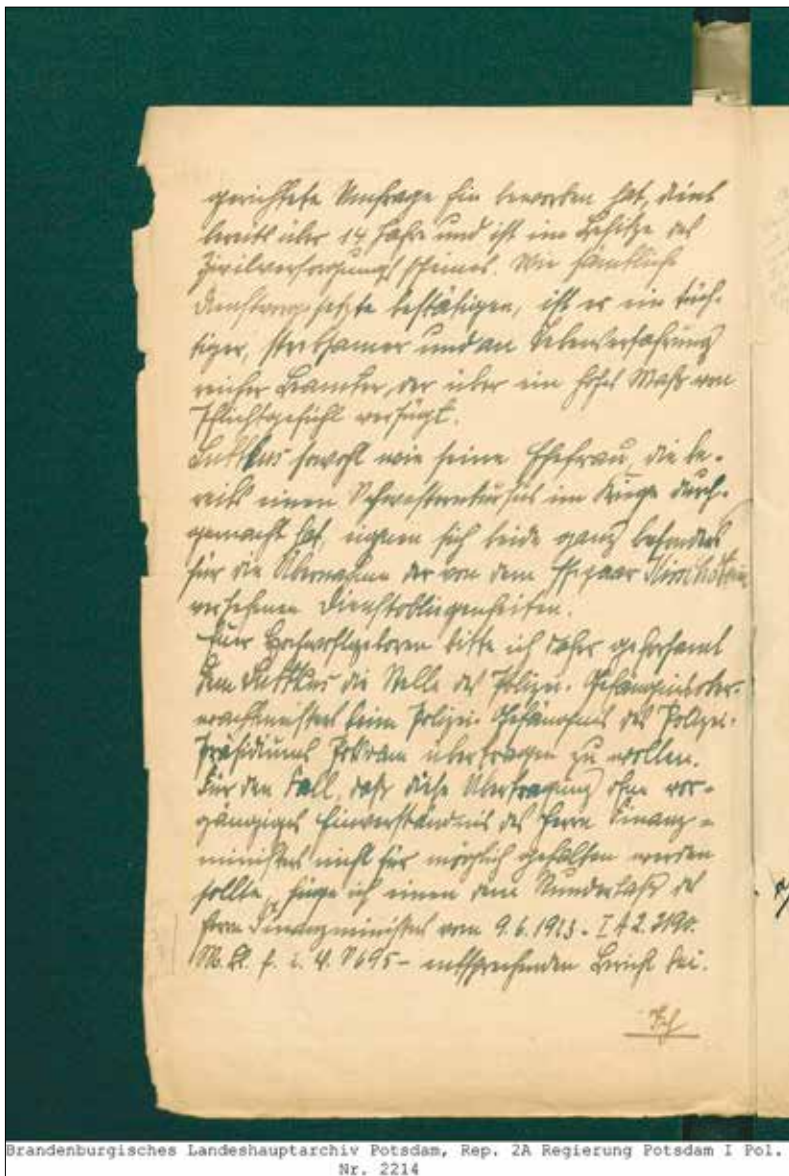 gerichtete Umfrage hin beworben hat, dient
bereits über 14 Jahre und ist im Besitze des
Zivilversorgungsscheines. Wie sämtliche
Dienstvorgesetzte bestätigen, ist er ein tüch-
tiger, strebsamer und an Lebenserfahrung
reicher Beamter, der über ein hohes Maß von
Pflichtgefühl verfügt.
sowohl wie seine Ehefrau, die be-
reits einen Schwesternkursus im Kriege durch-
gemacht hat, eignen sich beide ganz besonders
für die Übernahme der von dem Ehepaar
versehenen Dienstobliegenheiten.
Euer Hochwohlgeboren bitte ich daher gehorsamst
dem die Stelle des Polizei-Gefängnisober-
wachtmeisters beim Polizei-Gefängnis des Polizei-
Präsidiums Potsdam übertragen zu wollen.
Für den Fall, daß diese Übertragung ohne vor-
gängiges Einverständnis des Herrn Finanz-
ministers nicht für möglich gehalten werden
sollte, füge ich einen dem Runderlaß des
Herrn Finanzministers vom 9.6.1923 - I A 2. 3190.
M. d. I. - entsprechenden Bericht bei.
Ich
Brandenburgisches Landeshauptarchiv Potsdam, Rep. 2A Regierung Potsdam I Pol.
Nr. 2214